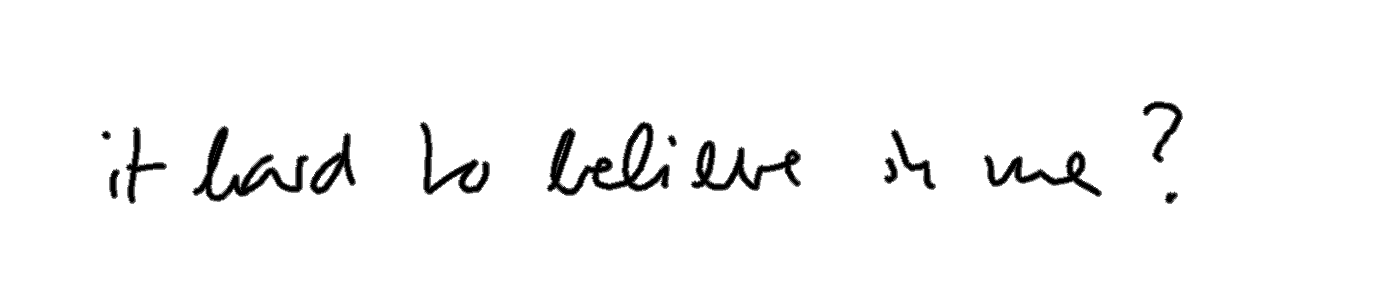 it hard to believe in me?